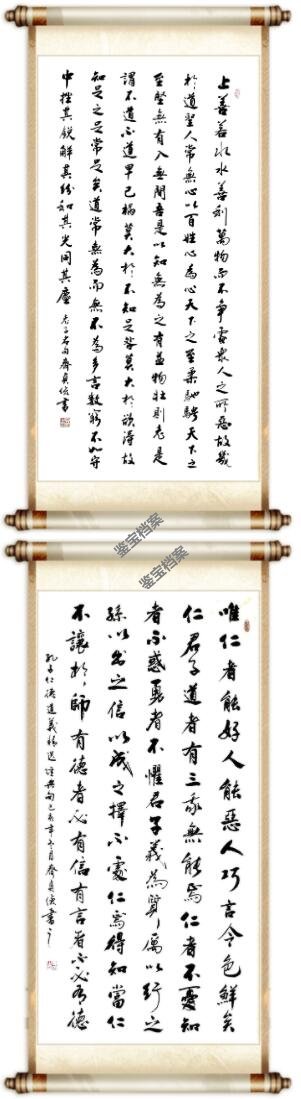 上善若水水善利萬物而不爭處衆人之所惡故幾
於道聖人常無心以百姓心為心天下之至柔馳騁天下之
至堅無有入無間吾是以知無為之有益物壯則老是
謂不道不道早已禍莫大於不知足咎莫大於欲得故
知足之足常足矣道常無為而無不為多言數窮不如守
中挫其銳解其紛和其光同其塵 老子名句齊貞書
鉴宝档案
鉴宝档案
唯仁者能好人能惡人巧言令色鮮矣
仁君子道者有三我無能焉仁者不憂知
者不惑勇者不懼君子義為質禮以行之
孫以出之信以成之擇不處仁焉得知當仁
不讓於師有德者必有信有言者不必有德
孔子仁德道義精選經典句己亥年月齊貞書之